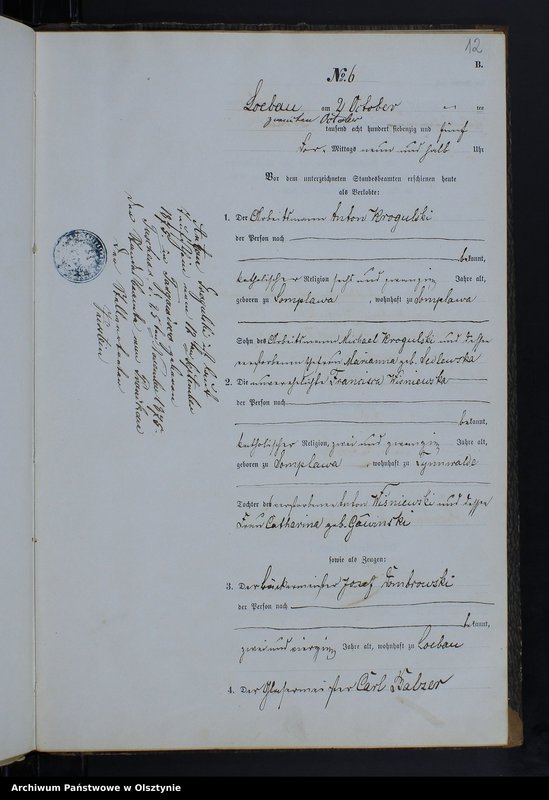 12
B.
No. 6
Loebau am 2 October
zweiten October
tausend acht hundert siebenzig und fünf
Vor Mittags neun und halb Uhr
Vor dem unterzeichneten Standesbeamten erschienen heute
als Verlobte:
1. Der Arbeitsmann Anton Krogulski
der Person nach
bekannt,
katholischer Religion, sechs und zwanzig Jahre alt,
geboren zu Somplawa, wohnhaft zu Somplawa
Sohn des Arbeitsmann Michael Krogulski und dessen
verstorbenen Ehefrau Marianna geb. Sedlewska
2. Die unverehelichte Francisca Wiśniewska
der Person nach
bekannt,
katholischer Religion, zwei und zwanzig Jahre alt,
geboren zu Somplawa, wohnhaft zu Tynnwalde
Tochter des verstorbenen Anton Wiśniewski und dessen
Frau Catharina geb. Gawinski
sowie als Zeugen:
3. Der Bäckermeister Josef Dombrowski
der Person nach
bekannt,
zwei und vierzig Jahre alt, wohnhaft zu Loebau
4. Der Glasermeister Carl Balzer
Anton Krogulski ist laut
1875 in
1876
des Standesamts
Archiwum Państwowe w Olsztynie